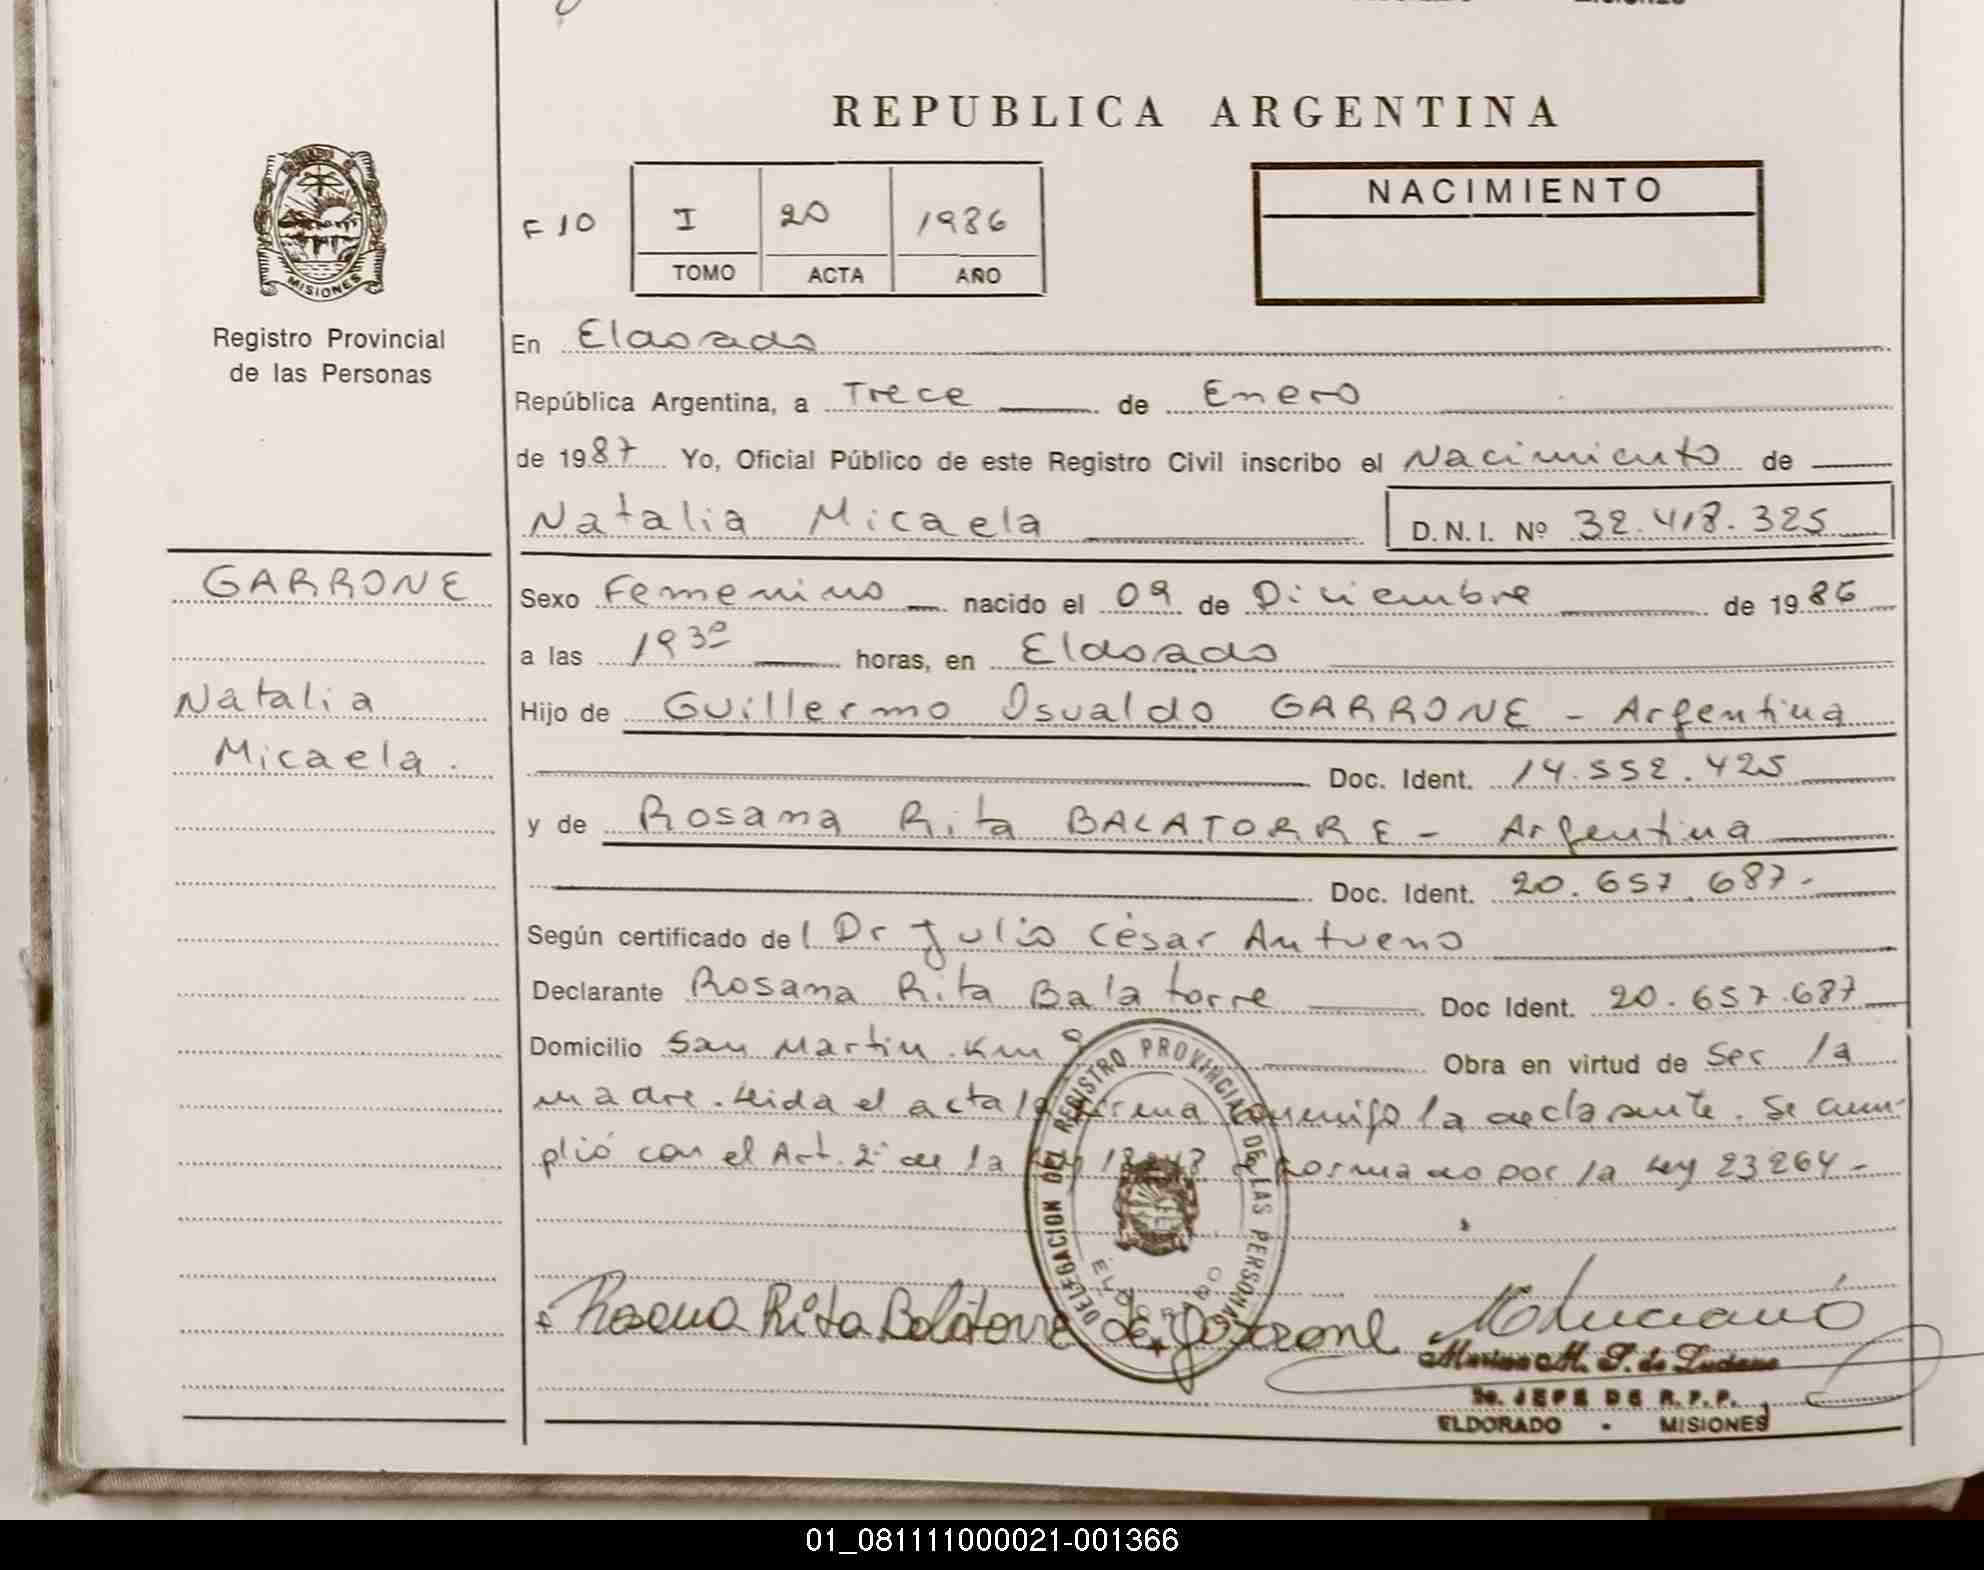 REPUBLICA ARGENTINA
MISIONES
Registro Provincial
de las Personas
F 10
I 20 1986
TOMO ACTA AÑO
NACIMIENTO
En Eldorado
República Argentina, a Trece de Enero
de 1987 Yo, Oficial Público de este Registro Civil inscribo el Nacimiento de
Natalia Micaela D.N.I. Nº 32.418.325
GARRONE
Natalia
Micaela.
Sexo Femenino nacido el 09 de Diciembre de 1986
a las 19 30 horas, en Eldorado
Hijo de Guillermo Osvaldo GARRONE - Argentina
Doc. Ident. 14.552.425
y de Rosana Rita BALATORRE - Argentina
Doc. Ident. 20.657.687-
Según certificado del Dr Julio César Antueno
Declarante Rosana Rita Balatorre Doc Ident. 20.657.687
Domicilio San Martin. Km 9 Obra en virtud de ser la
madre. Leida el acta la firma conmigo la declarante. Se cum-
plió con el Art. 2º de la Ley 18248 reformado por la Ley 23264-
DELEGACION DEL REGISTRO PROVINCIAL DE LAS PERSONAS
ELDORADO
Rosana Rita Balatorre de Garrone
M Luciano
Marina M. S. de Luciano
JEFE DE R.P.P.
ELDORADO - MISIONES
01_081111000021-001366